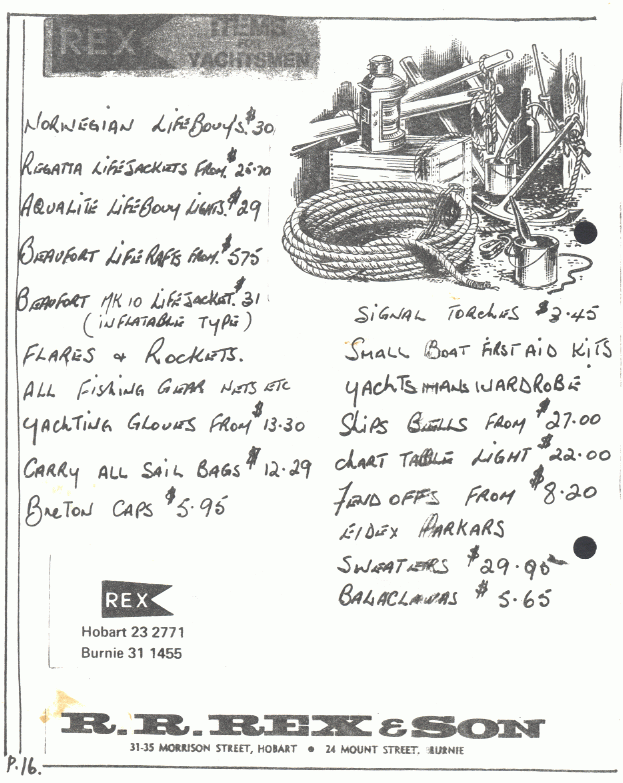 REX
ITEMS
FOR
YACHTSMEN
NORWEGIAN LIFEBOUYS. $30
REGATTA LIFEJACKETS FROM $26.70
AQUALITE LIFEBOUY LIGHTS. $29
BEAUFORT LIFE RAFTS FROM. $575
BEAUFORT MK 10 LIFEJACKET. $31
(INFLATABLE TYPE)
FLARES & ROCKETS.
ALL FISHING GEAR NETS ETC
YACHTING GLOVES FROM $13.30
CARRY ALL SAIL BAGS $12.29
BRETON CAPS $5.95
SIGNAL TORCHES $3.45
SMALL BOAT FIRST AID KITS
YACHTSMANS WARDROBE
SHIPS BELLS FROM $27.00
CHART TABLE LIGHT $22.00
FEND OFFS FROM $8.20
EIDEX PARKARS
SWEATERS $29.90
BALACLAVAS $5.65
REX
Hobart 23 2771
Burnie 31 1455
R. R. REX & SON
31-35 MORRISON STREET, HOBART • 24 MOUNT STREET. BURNIE
P.16.